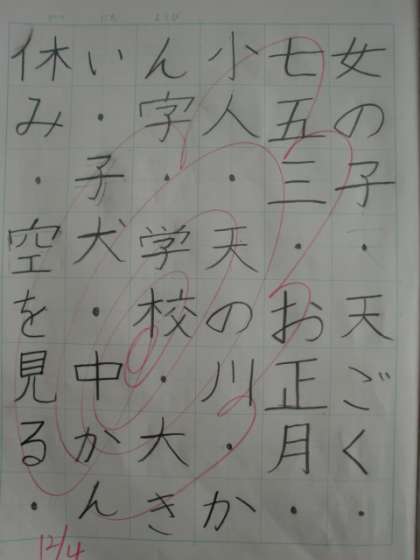 女の子・天ごく・
七五三・お正月・
小人・天の川・か
ん字・学校・大き
い・子犬・中かん
休み・空を見る・
12/4